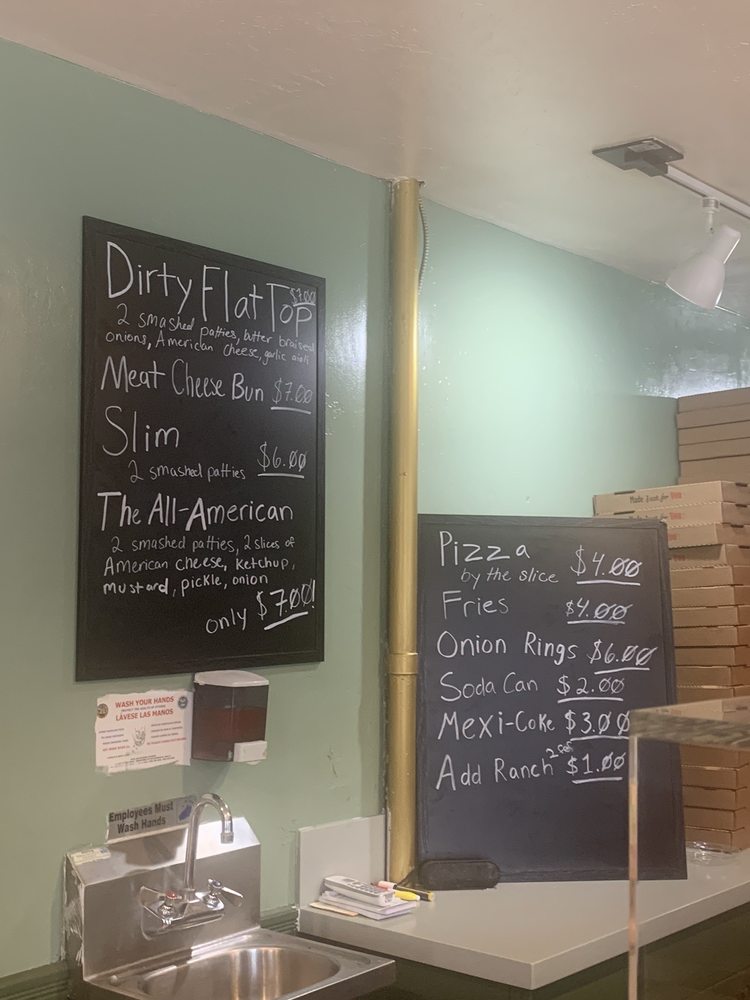 Dirty Flat Top
$7.00
2 smashed patties, butter braised
onions, American cheese, garlic aioli
Meat Cheese Bun $7.00
Slim
2 smashed patties $6.00
The All-American
2 smashed patties, 2 slices of
American cheese, ketchup,
mustard, pickle, onion
only $7.00!
Pizza
by the slice $4.00
Fries $4.00
Onion Rings $6.00
Soda Can $2.00
Mexi-Coke $3.00
Add Ranch 2 for $1.00
Made Just for You
Made Just for
WASH YOUR HANDS
LAVESE LAS MANOS
Employees Must
Wash Hands